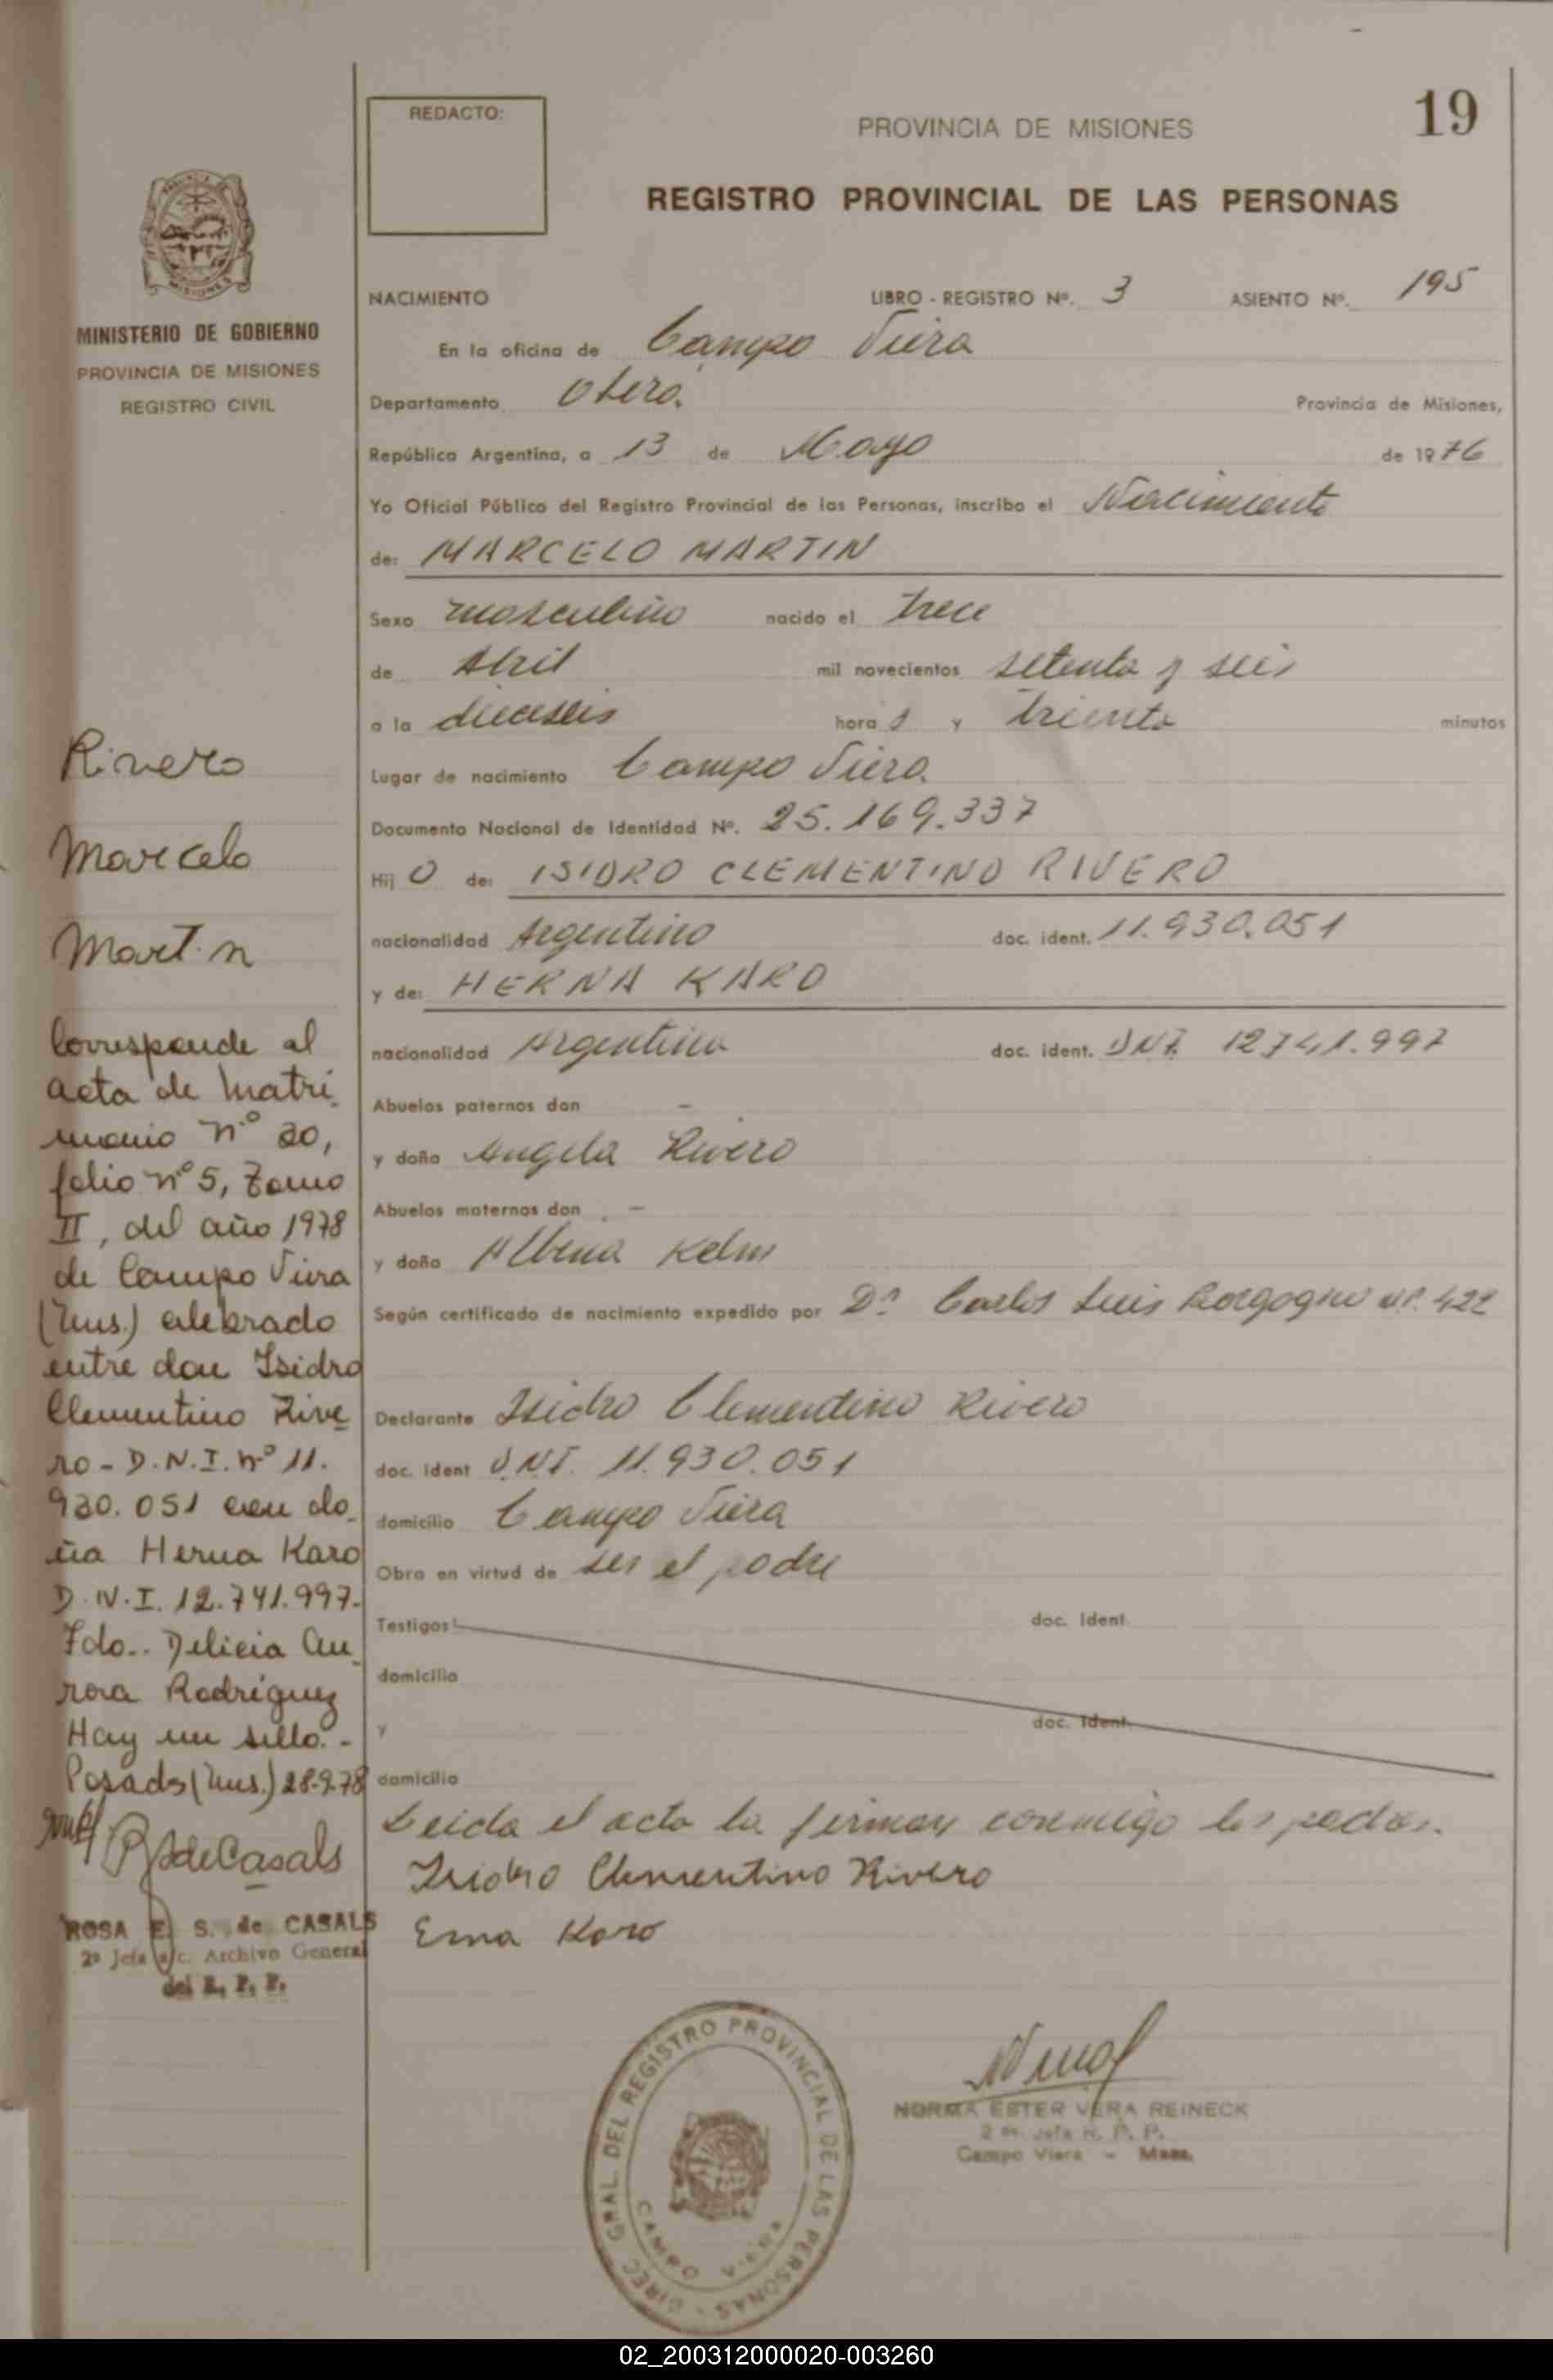 REDACTO:
PROVINCIA DE MISIONES
19
REGISTRO PROVINCIAL DE LAS PERSONAS
MINISTERIO DE GOBIERNO
PROVINCIA DE MISIONES
REGISTRO CIVIL
NACIMIENTO LIBRO - REGISTRO Nº. 3 ASIENTO Nº. 195
En la oficina de Campo Viera
Departamento Obera. Provincia de Misiones,
República Argentina, a 13 de Mayo de 1976
Yo Oficial Público del Registro Provincial de las Personas, inscribo el Nacimiento
de: MARCELO MARTIN
Sexo masculino nacido el trece
de Abril mil novecientos setenta y seis
a la dieciseis hora s y treinta minutos
Lugar de nacimiento Campo Viera.
Documento Nacional de Identidad Nº. 25.169.337
Hij O de: ISIDRO CLEMENTINO RIVERO
nacionalidad Argentino doc. ident. 11.930.051
y de: HERNA KARO
nacionalidad Argentina doc. ident. DNI. 12741.997
Abuelos paternos don -
y doña Angela Rivero
Abuelos maternos don -
y doña Albina Kelm
Según certificado de nacimiento expedido por Dr. Carlos Luis Borgogno MP. 422
Declarante Isidro Clementino Rivero
doc. ident D.N.I. 11.930.051
domicilio Campo Viera
Obra en virtud de ser el padre
Testigos: doc. ident.
domicilio
y doc. ident.
domicilio
Leida el acta la firman conmigo los padres.
Isidro Clementino Rivero
Erna Karo
Rivero
Marcelo
Martin
Corresponde al
acta de matri
monio nº 20,
folio nº 5, Tomo
II, del año 1978
de Campo Viera
(Mns.) celebrado
entre don Isidro
Clementino Rive
ro - D.N.I. nº 11.
930.051 con do
ña Herna Karo
D.N.I. 12.741.997-
Fdo.. Delicia Au
rora Rodriguez
Hay un sello.-
Posadas (Mns.) 28-9-78
RSdeCasals
ROSA E. S. de CASALS
2º Jefa a/c. Archivo General
del R. P. P.
DIREC. GRAL. DEL REGISTRO PROVINCIAL DE LAS PERSONAS -
CAMPO VIERA
NORMA ESTER VERA REINECK
2 da. Jefa R. P. P.
Campo Viera - Mnes.
02_200312000020-003260